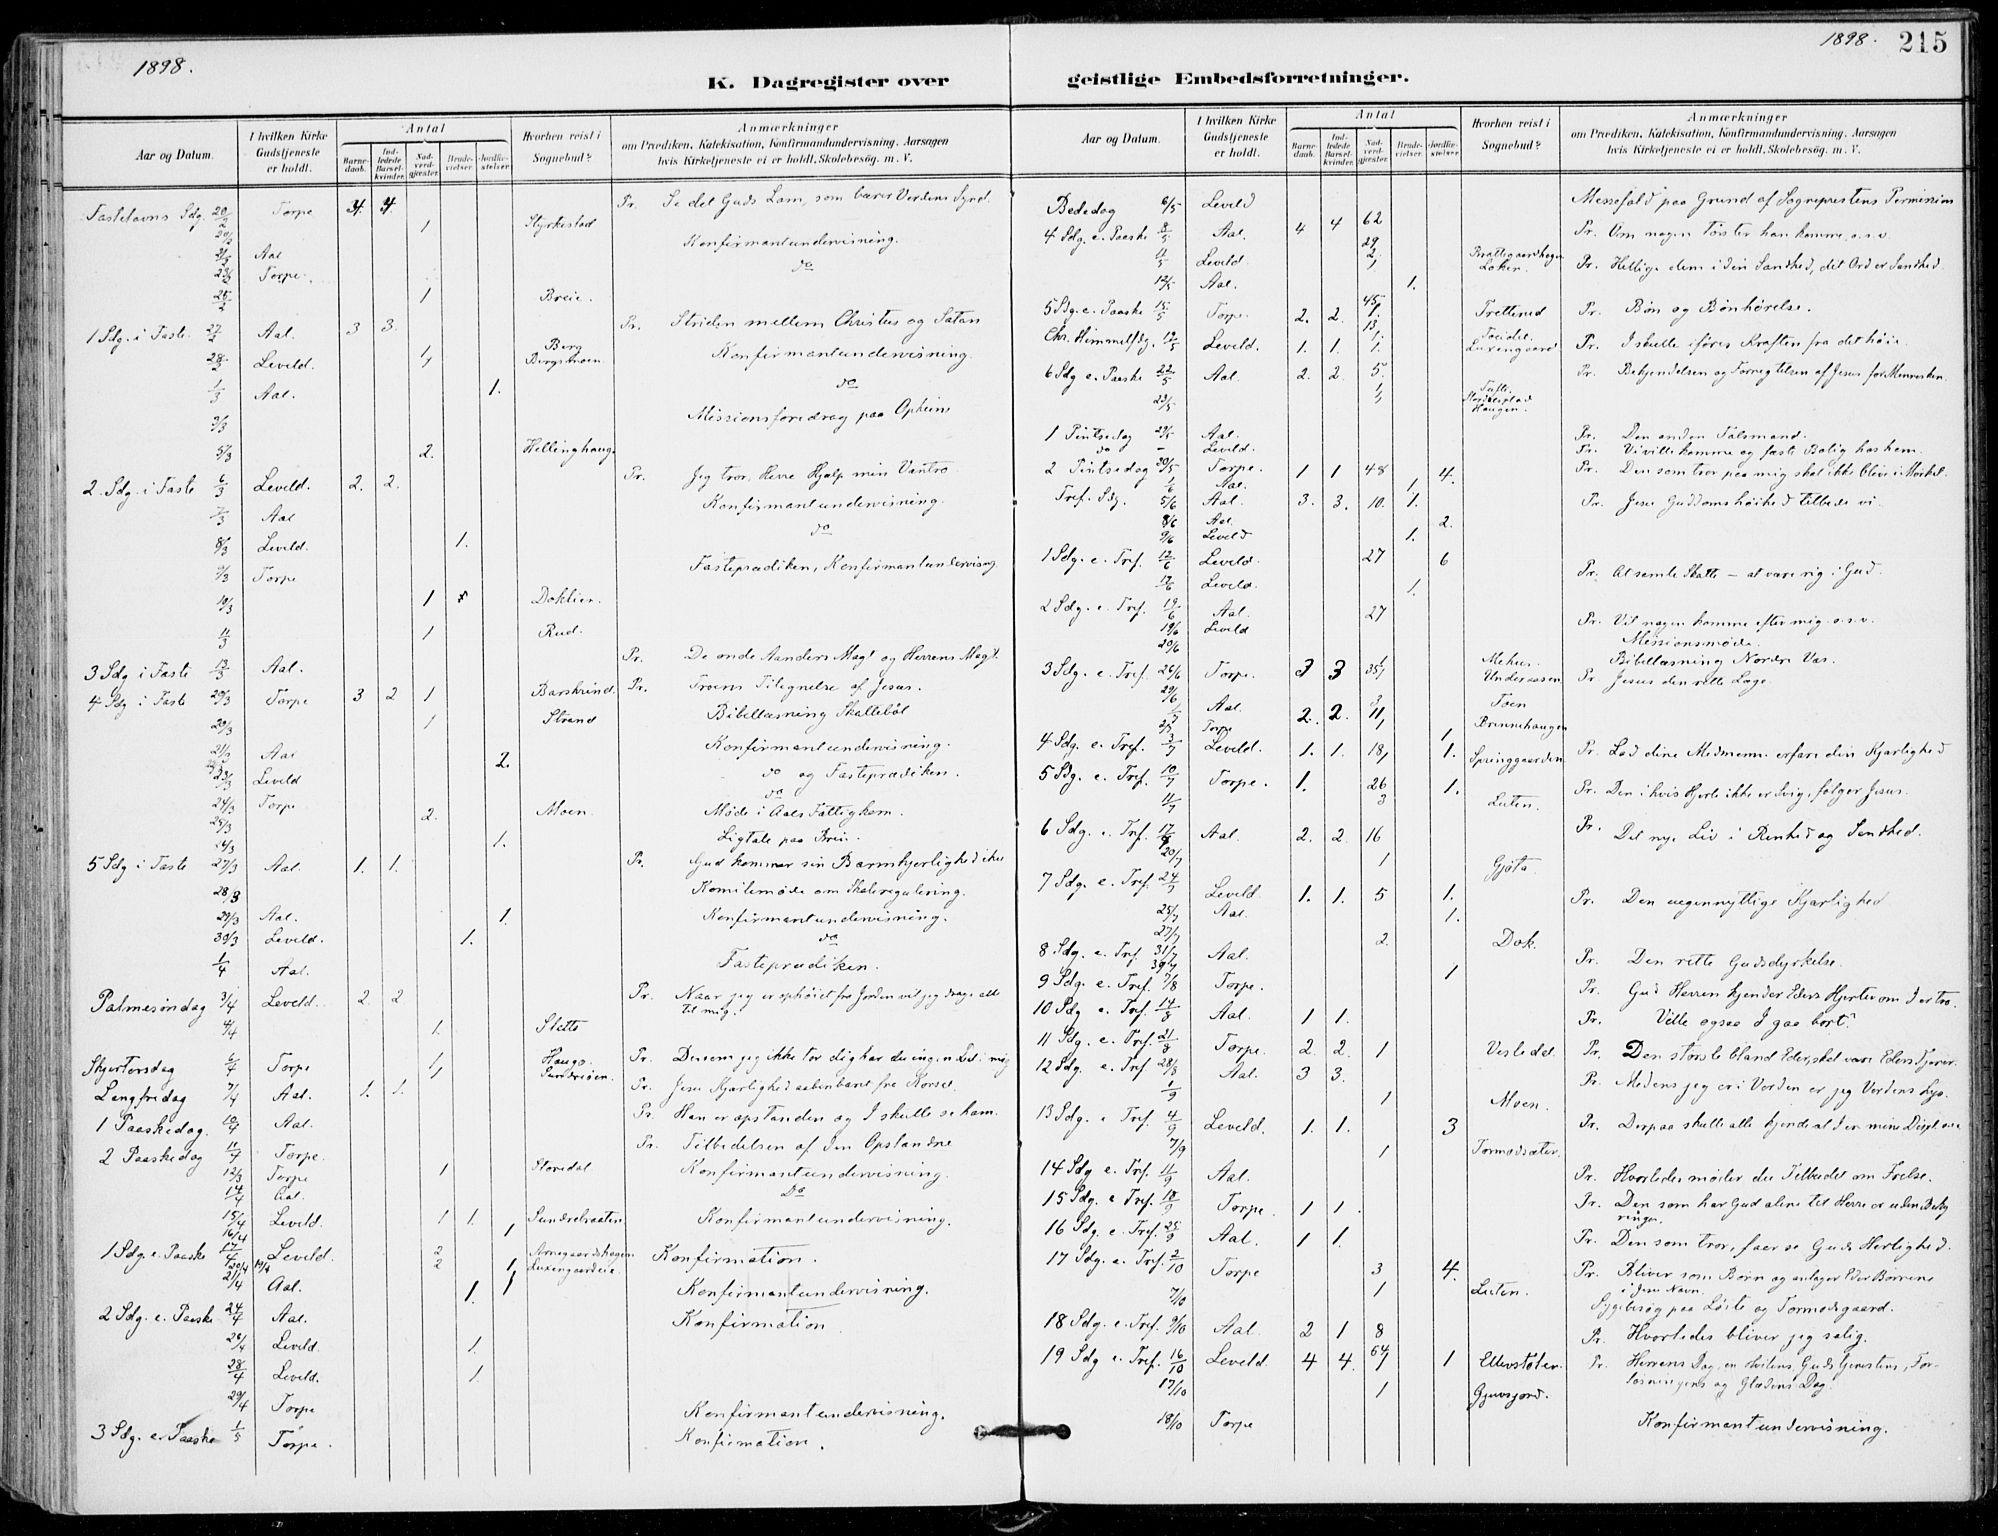 1898.
1898. 215
K. Dagregister over geistlige Embedsforretninger.
Aar og Datum.
I hvilken Kirke Gudstjeneste er holdt.
Antal
Barnedaab.
Indledede Barselkvinder.
Nadverdgjæster.
Brudevielser.
Jordfæstelser.
Hvorhen reist i Sognebud?
Anmærkninger
om Prædiken, Katekisation, Konfirmandundervisning. Aarsagen
hvis Kirketjeneste ei er holdt. Skolebesøg. m. V.
Fastelavns Sdg. 20/2 Torpe 4. 4. Pr. Se det Guds Lam, som bærer Verdens Synd.
20/2 1 Styrkestad
Aal Konfirmantundervisning.
Torpe. do
1 Breie.
1 Sdg. i Faste 27/2 Aal. 3 3. Pr. Striden mellem Christus og Satan
28/2 Leveld. Berg Konfirmantundervisning.
1/3 Aal. 1. do
3/3 Missionsforedrag paa Opheim
5/3 2. Hellinghaug
2. Sdg. i Faste 6/3 Leveld. 2. 2. Pr. Jeg tror, Herre Hjælp min Vantro
7/3 Aal Konfirmantundervisning.
8/3 Leveld. 1. do
9/3 Torpe Fasteprædiken, Konfirmantundervisning
10/3 1 Doklien.
11/3 1 Rud.
3 Sdg i Faste 13/3 Aal. Pr. De onde Aanders Magt og Herrens Magt.
4 Sdg i Faste 20/3 Torpe 3 2 1 Barskrind. Pr. Troens Tilegnelse af Jesus.
20/3 1 Strand Bibellæsning Skattebøl
21/3 Aal 2. Konfirmantundervisning.
23/3 Leveld do og Fasteprædiken.
24/3 Torpe do
25/3 2. Moen. Møde i Aals Fattighem.
1. Ligtale paa Brei.
5 Sdg i Faste 27/3 Aal. 1. 1. Pr. Gud kommer sin Barmhjertighed ihu
28/3 Komitemøde om Skoleregulering.
29/3 Aal. 1. Konfirmantundervisning.
30/3 Leveld. 1. do
1/4 Aal. Fasteprædiken.
Palmesøndag 3/4 Leveld. 2. 2 Pr. Naar jeg er ophøiet fra Jorden vil jeg drage alle
til mig.
4/4 1. Sletto
Skjærtorsdag 6/4 Torpe Haugs. Pr. Dersom jeg ikke tor dig har du ingen Lod i mig
Langfredag 7/4 Aal. 1. 1. Pr. Jesu Kjærlighed aabenbaret fra Korset.
1 Paaskedag. 10/4 Aal. Pr. Han er opstanden og I skulle se ham.
2 Paaskedag 11/4 Torpe. Pr. Tilbedelsen af den Opstandne
Torpe 1 Storedal Konfirmantundervisning.
14/4 Aal. Do
15/4 Leveld. 1 1. Sundrelsaaten Konfirmantundervisning.
16/4 1
1 Sdg. e. Paaske 17/4 Leveld. 2 Arnegaardshagen Konfirmation.
20/4 2 Luxengaardeie.
21/4 Aal. 1. Konfirmantundervisning.
2 Sdg. e. Paaske 24/4 Aal. Konfirmation
Leveld. 1.
28/4 Leveld. 1.
29/4 Torpe Konfirmantundervisning.
3 Sdg. e. Paaske 1/5 Torpe. Konfirmation.
Aar og Datum.
I hvilken Kirke Gudstjeneste er holdt.
Antal
Barnedaab.
Indledede Barselkvinder.
Nadverdgjæster.
Brudevielser.
Jordfæstelser.
Hvorhen reist i Sognebud?
Anmærkninger
om Prædiken, Katekisation, Konfirmandundervisning. Aarsagen
hvis Kirketjeneste ei er holdt. Skolebesøg. m. V.
Bededag 6/5 Leveld Messefald paa Grund af Sogneprestens Permission
4 Sdg. e. Paaske 8/5 Aal. 4 4 62 Pr. Om nogen Tørster han komme o.s.v.
11/5 Leveld. Pr. Hellige dem i din Sandhed, dit Ord er Sandhed.
12/5 Aal. 1.
5 Sdg. e. Paaske 15/5 Torpe. 2. 2. 45 Tretterud Pr. Bøn og Bønhørelse.
Chr. Himmelfdg. Leveld. 1. 1. Luxengaard Pr. I skulle iføres Kraften fra det høie.
6 Sdg e. Paaske 22/5 Aal. 2. 2. 5. Pr. Bekjendelsen og Fornegtelsen af Jesus for Mennesken.
23/5 Haugen.
1 Pintsedag 29/5 Aal. Pr. Den anden Talsmand.
do - Leveld. Pr. Vi ville komme og fæste Bolig hos ham.
2 Pintsedag 30/5 Torpe. 1 1 48 4. Pr. Den som tror paa mig skal ikke blive i Mørket.
1/6 Aal. 1.
Tref. Sdg. 5/6 Aal. 3. 3. 10. 1. Pr. Jesu Guddomshøihed tilbede vi.
8/6 Aal. 2.
9/6 Leveld 1.
1 Sdg. e. Tref. 12/6 Leveld. 27 6 Pr. At samle Skatte — at være rig i Gud.
Leveld. 1.
2 Sdg. e. Tref. 19/6 Aal. 27 Pr. Vil nogen komme efter mig o.s.v.
19/6 Leveld Missionsmøde.
20/6 Bibellæsning Nordre Vas.
3 Sdg. e. Tref. 26/6 Torpe. 3 3 Mehus. Underaasen Pr. Jesus den rette Læge.
29/6 Toen
Aal. 2. 2. 11 Brennehaugen
Torpe 1.
4 Sdg. e. Tref. 3/7 Leveld. 1. 1. 18 1. Springgaarden Pr. Lad dine Medmenn. erfare din Kjærlighed
5 Sdg. e. Tref. 10/7 Torpe. 1. 26 1. Pr. Den i hvis Hjerte ikke er Svig, følger Jesus.
11/7 3 Luten.
6 Sdg. e. Tref. 17/7 Aal. 2. 2. 16 Pr. Det nye Liv i Renhed og Sandhed.
20/7 1 Gjøta
7 Sdg. e. Tref. 24/7 Leveld 1. 1. 5 1. Pr. Den uegennyttige Kjærlighed
25/7 Aal. 1.
27/7 2. Dok.
8 Sdg. e. Tref. 31/7 Aal. Pr. Den rette Gudsdyrkelse.
1
9 Sdg. e. Tref. 7/8 Torpe. Pr. Gud Herren kjender Eders Hjerter om I er tro.
10 Sdg e. Tref. 14/8 Aal. 1 1. Pr. Ville ogsaa I gaa bort?
11 Sdg. e. Tref. 21/8 Torpe. 2. 2. 1 Vesledal. Pr. Den største bland Eder, skal være Eders Tjener.
12 Sdg. e. Tref 28/8 Aal. 3 3. Pr. Medens jeg er i Verden er jeg Verdens Lys.
1/9 1 Moen.
13 Sdg. e Tref. 4/9 Leveld. 1. 1. 3 Pr. Derpaa skulle alle kjende at I er mine Disiple
7/9 1 Tormodsæter.
14 Sdg e. Tref. 11/9 Aal. Pr. Hvorledes møder du Tilbudet om Frelse.
15 Sdg. e Tref. 18/9 Torpe. 1 1. Pr. Den som har Gud alene til Herre er uden Beky
ringer.
16 Sdg. e. Tref. 25/9 Aal. 1 1. Pr. Den som tror, faar se Guds Herlighed.
17 Sdg. e. Tref. 2/10 Torpe 3 4. Pr. Bliver som Børn og antager Eder Børnene
i Jesu Navn.
7/10 1 Luten. Sygebesøg paa Løste og Tormodsgaard.
18 Sdg. e. Tref. 9/10 Aal. 2 1 8 Pr. Hvorledes bliver jeg salig.
19 Sdg e. Tref. 16/10 Leveld. 4 4. 64 1 Ellevstølen. Pr. Herrens Dag, en Hvilens, Gudstjenestens, For-
løsningens og Glædens Dag.
17/10 1 Gjuvsjord.
18/10 Torpe Konfirmantundervisning.